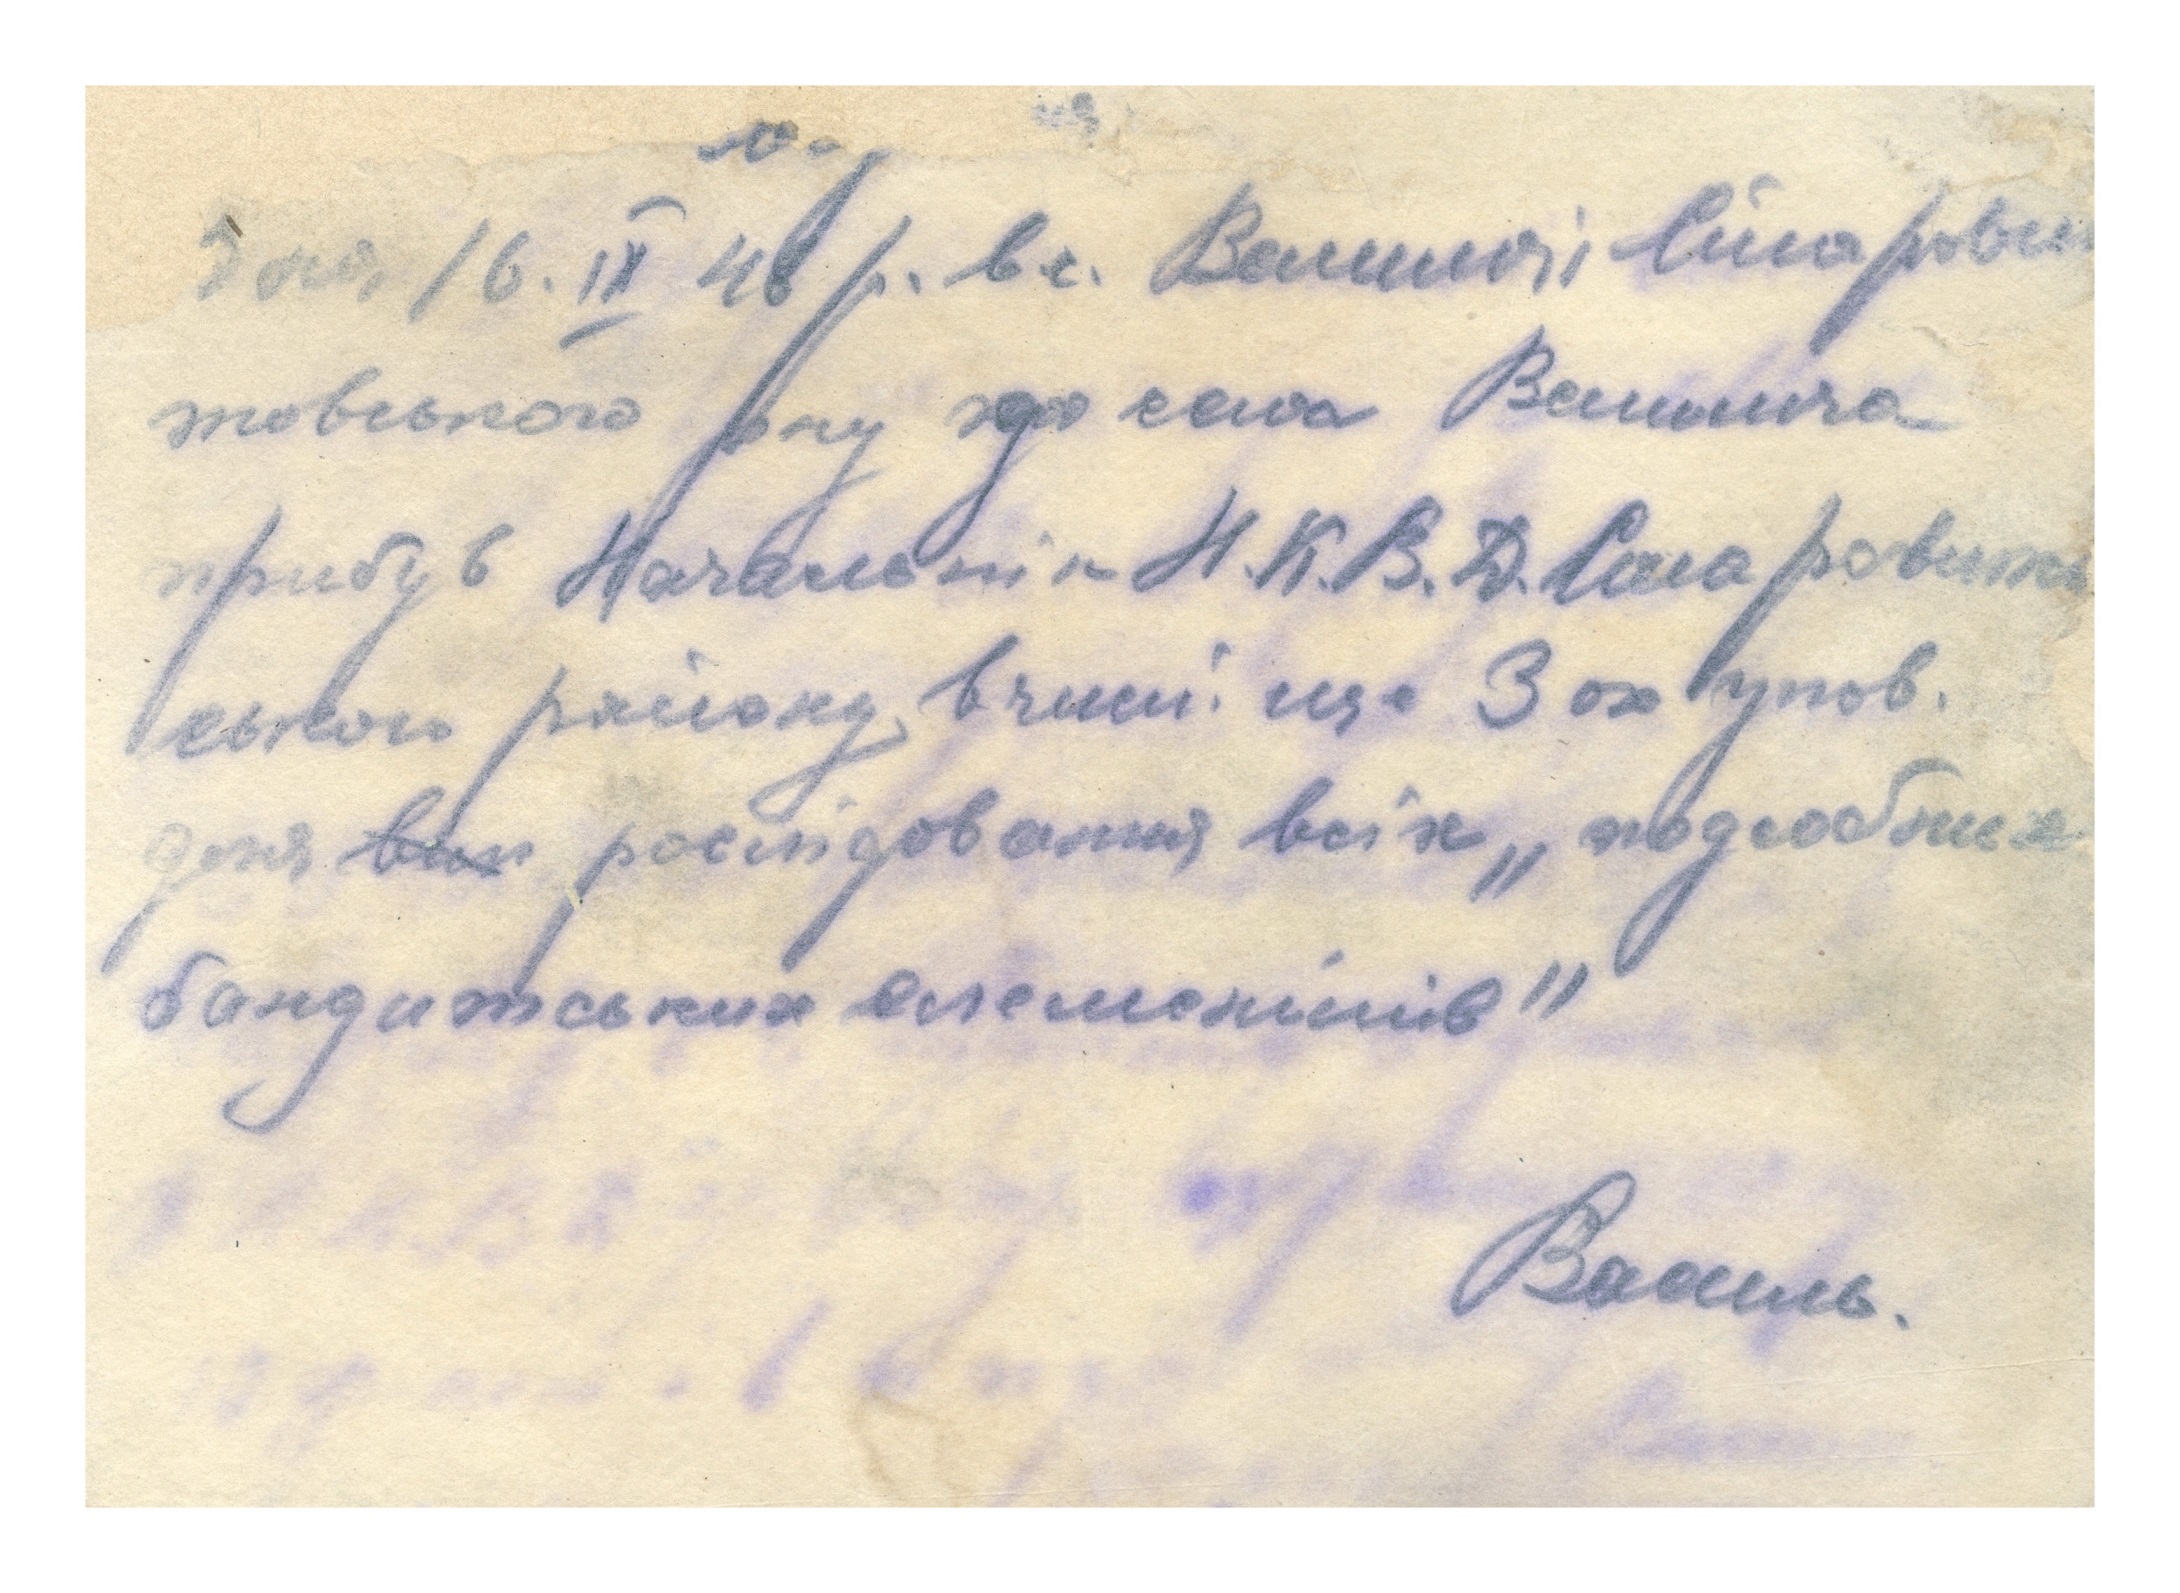 Дня 16. IX 46 р. в с. Велишчі Старови
жовського рну до села Велимча
прибув Начальнік Н.К.В.Д. Старовиж
ського району, вчисл: ще 3 ох упов.
для вил рослідовання всіх „подсобних
бандитських елементів"
Василь.